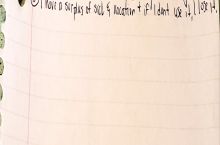 I have a surplus of sick & vacation & if I dont use it, I lose it,